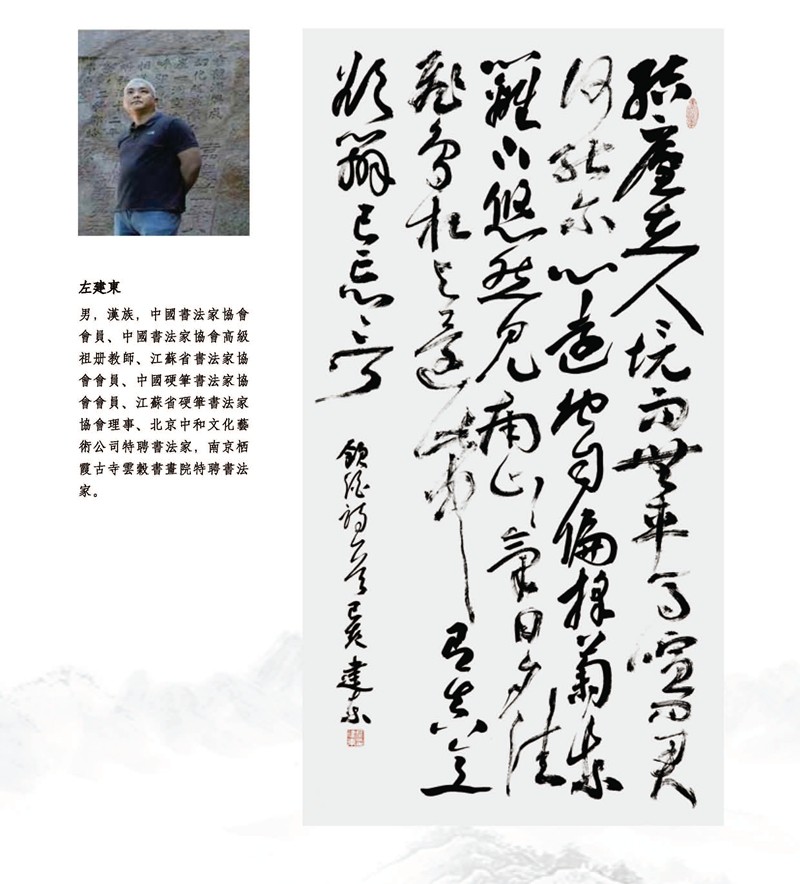 左建東
男，漢族，中國書法家協會
會員、中國書法家協會高級
祖册教師、江蘇省書法家協
會會員、中國硬筆書法家協
會會員、江蘇省硬筆書法家
協會理事、北京中和文化藝
術公司特聘書法家，南京栖
霞古寺雲穀書畫院特聘書法
家。
結廬在人境而無車馬喧問君
何能尔心遠地自偏採菊東
籬下悠然見南山山氣日夕佳
飛鳥相與還此中有真意
欲辯已忘言
詩一首己亥建東